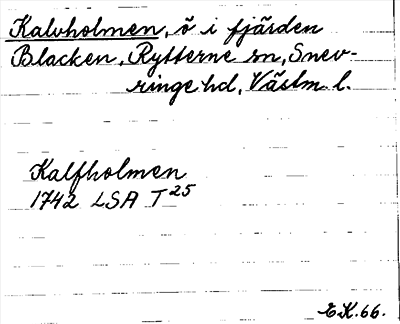 Kalvholmen, ö i fjärden
Blacken, Rytterne sn, Snev-
ringe hd, Västm. l.
Kalfholmen
1742 LSA T 25
E.K. 66.